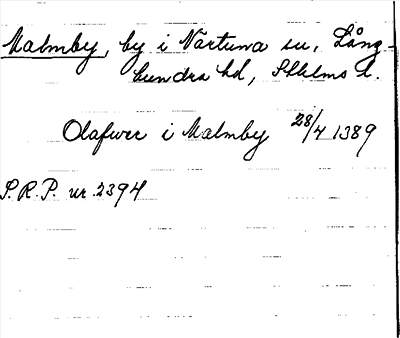 Malmby, by i Närtuna sn, Lång-
hundra hd, Sthlms l.
Olafwer i Malmby 28/4 1389
S.R.P. nr 2394